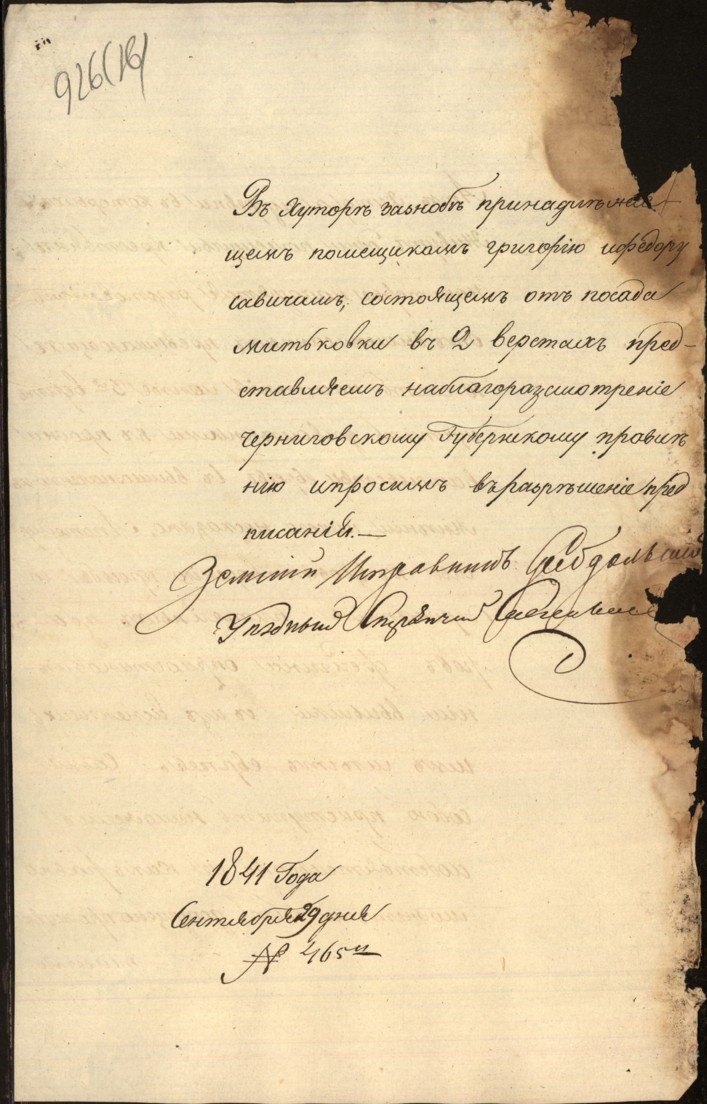 926(16)
Въ Хуторѣ принадлѣжа
щемъ помещикомъ григорію ифедору
савичамъ, состоящемъ отъ посада
митьковки въ 2 верстахъ пред-
ставляемъ наблагоразсмотреніе
Черниговскому Губернскому правле
нію ипросимъ въразрѣшеніе пред
писаній.—
Земскій Исправникъ
Уѣздный Стряпчий
1841 Года
Сентября 29 дня
№ 465